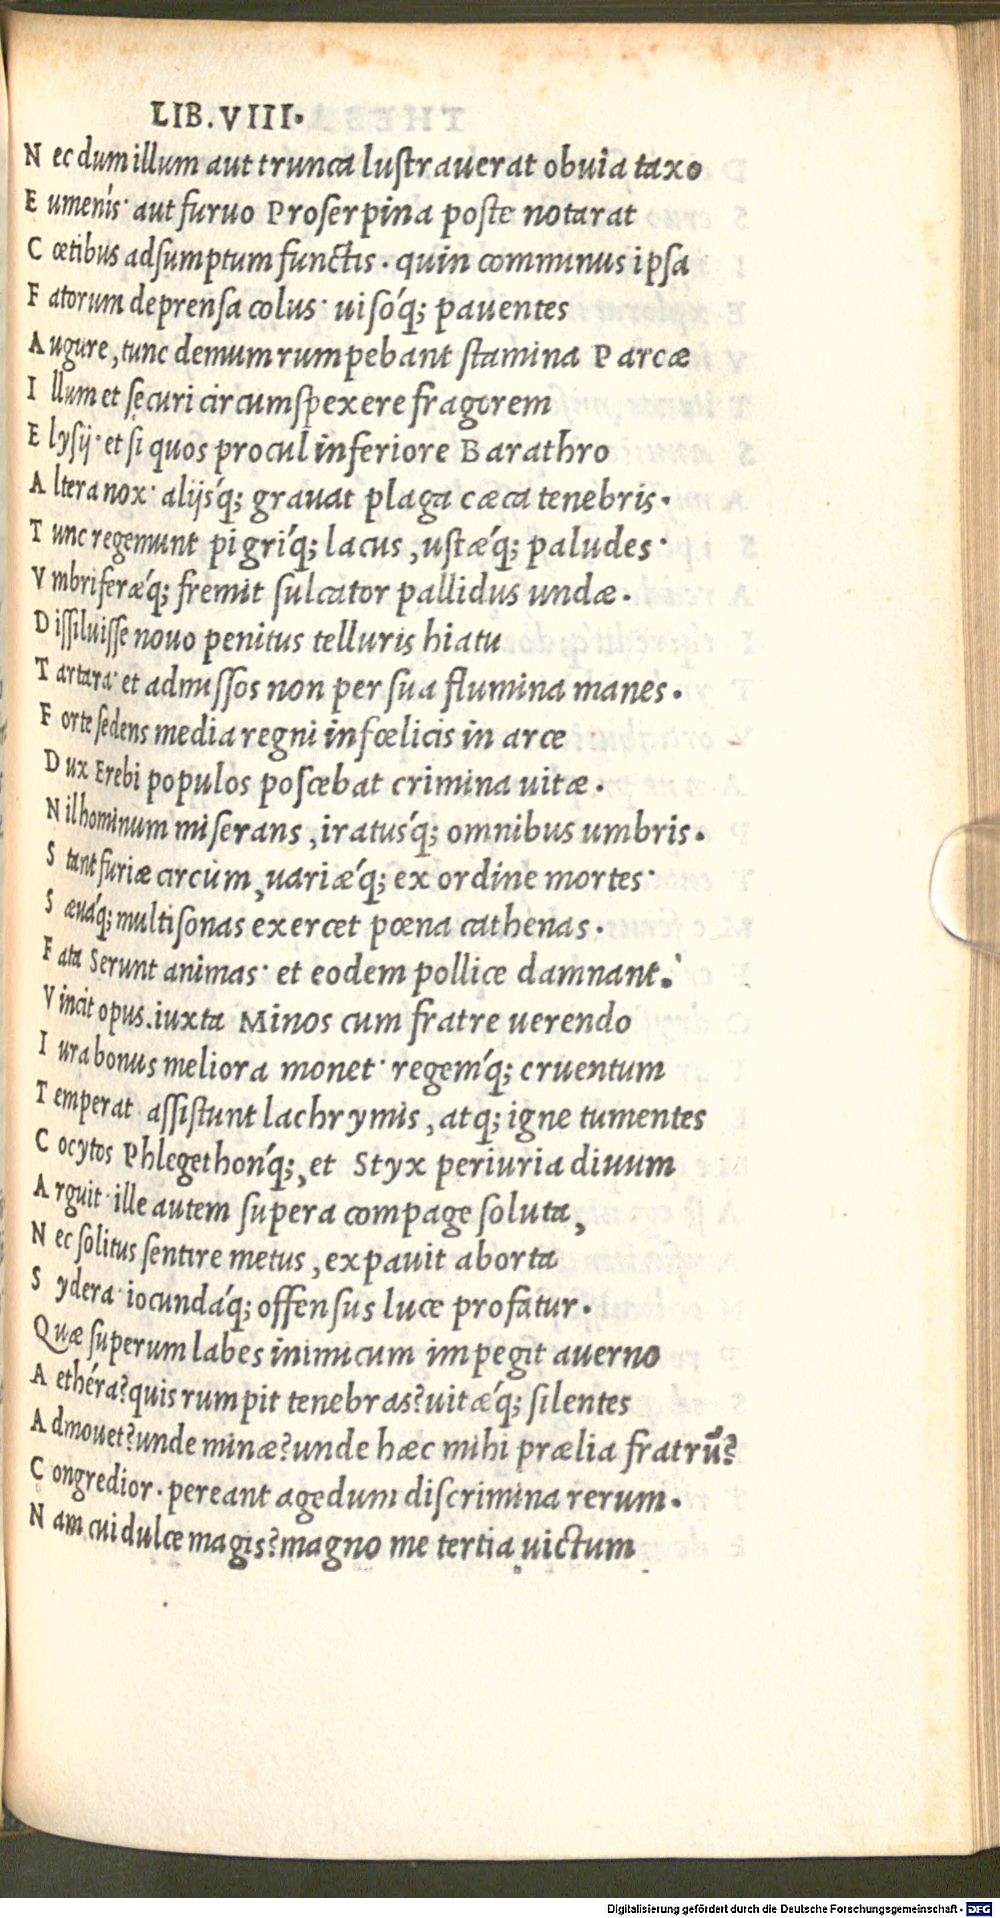 LIB. VIII.
N ec dum illum aut trunca lustrauerat obuia taxo
E umenis· aut furuo Proserpina poste notarat
C œtibus adsumptum functis. quin comminus ipsa
F atorum deprensa colus· uisóq; pauentes
A ugure, tunc demum rumpebant stamina Parcæ
I llum et securi circumspexere fragorem
E lysij· et si quos procul inferiore Barathro
A ltera nox· alijsq́; grauat plaga cæca tenebris.
T unc regemunt pigriq́; lacus, ustæq́; paludes·
V mbriferæq́; fremit sulcator pallidus undæ.
D issiluisse nouo penitus telluris hiatu
T artara· et admissos non per sua flumina manes.
F orte sedens media regni infœlicis in arce
D ux Erebi populos poscebat crimina uitæ.
N il hominum miserans, iratusq́; omnibus umbris.
S tant furiæ circum, uariæq́; ex ordine mortes·
S æuáq; multisonas exercet pœna cathenas.
F ata Serunt animas· et eodem pollice damnant.
V incit opus. iuxta Minos cum fratre uerendo
I ura bonus meliora monet· regemq́; cruentum
T emperat assistunt lachrymis, atq; igne tumentes
C ocytos Phlegethonq́;, et Styx periuria diuum
A rguit· ille autem supera compage soluta,
N ec solitus sentire metus, expauit aborta
S ydera· iocundáq; offensus luce profatur.
Quæ superum labes inimicum impegit auerno
A ethéra? quis rumpit tenebras? uitæq́; silentes
A dmouet? unde minæ? unde hæc mihi prælia fratrũ?
C ongredior. pereant agedum discrimina rerum.
N am cui dulce magis? magno me tertia uictum
Digitalisierung gefördert durch die Deutsche Forschungsgemeinschaft - DFG